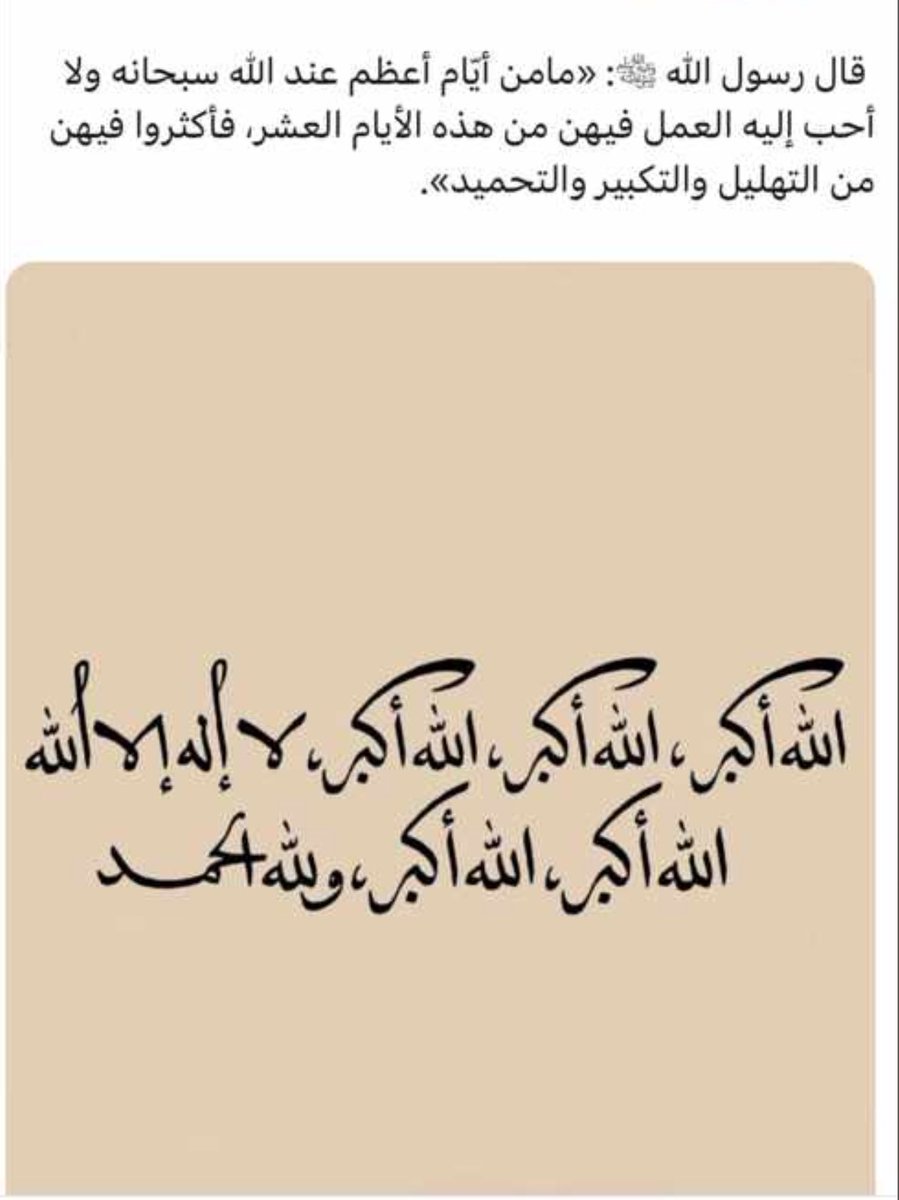 قال رسول الله ﷺ: «مامن أيّام أعظم عند الله سبحانه ولا
أحب إليه العمل فيهن من هذه الأيام العشر، فأكثروا فيهن
من التهليل والتكبير والتحميد».
الله أكبر، الله أكبر، الله أكبر، لا إله إلا الله
الله أكبر، الله أكبر، ولله الحمد